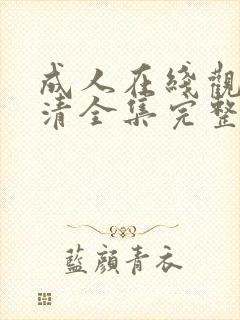 成人在綫觀
清全集完整
藍顔青衣